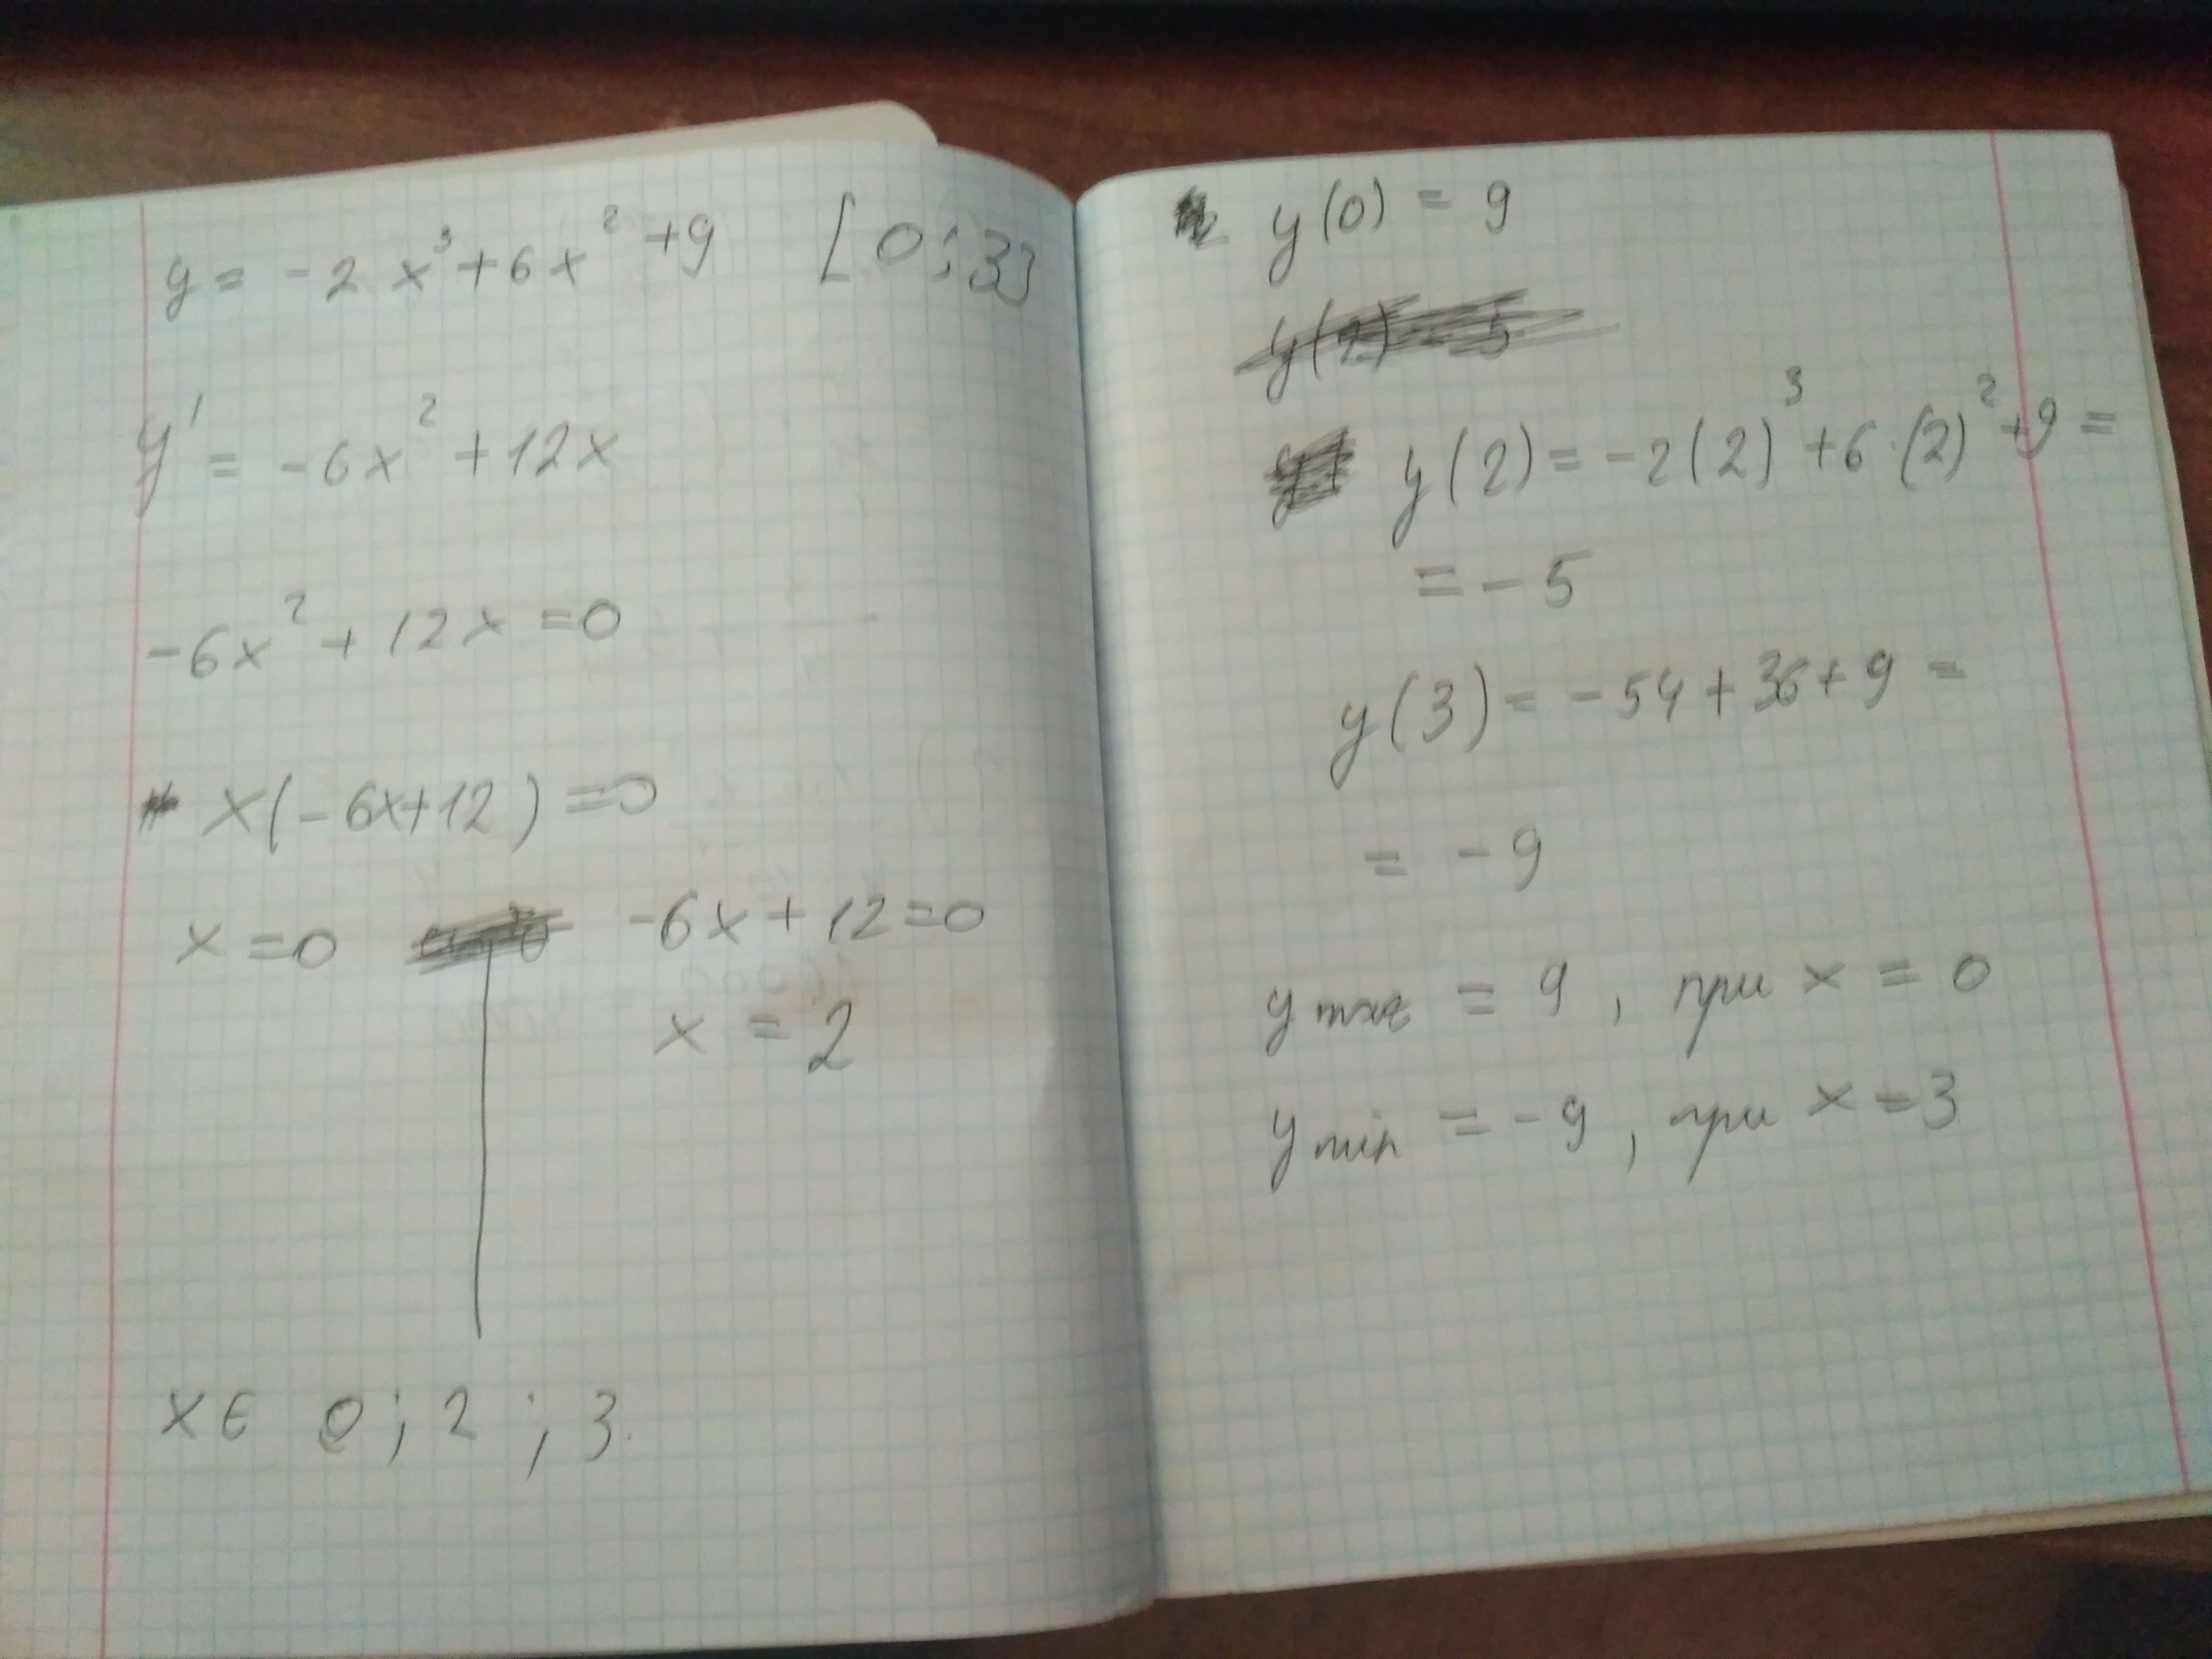 y = -2x³+6x²+9 [0;3]
y' = -6x²+12x
-6x²+12x=0
x(-6x+12)=0
x=0 -6x+12=0
x = 2
x∈ 0;2;3.
y(0) = 9
y(2)=-2(2)³+6·(2)²+9=
=-5
y(3)=-54+36+9=
= -9
y max = 9, при x = 0
y min = -9, при x=3